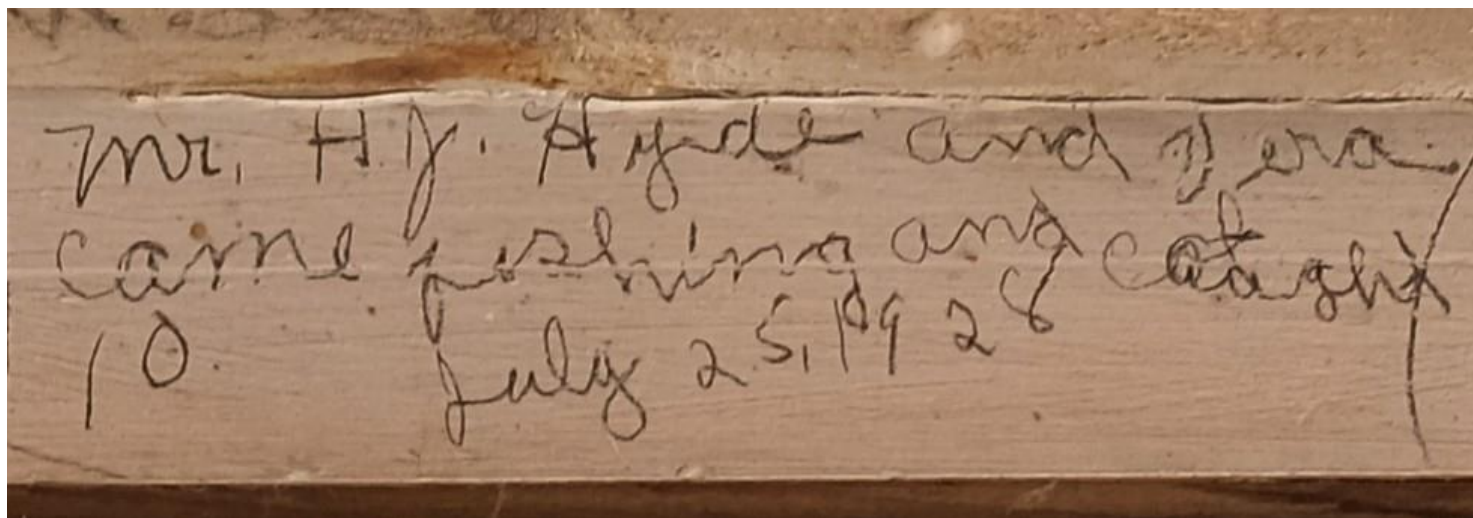 Mr. H.J. Hyde and Vera
came fishing and catught
10. July 25, 1928